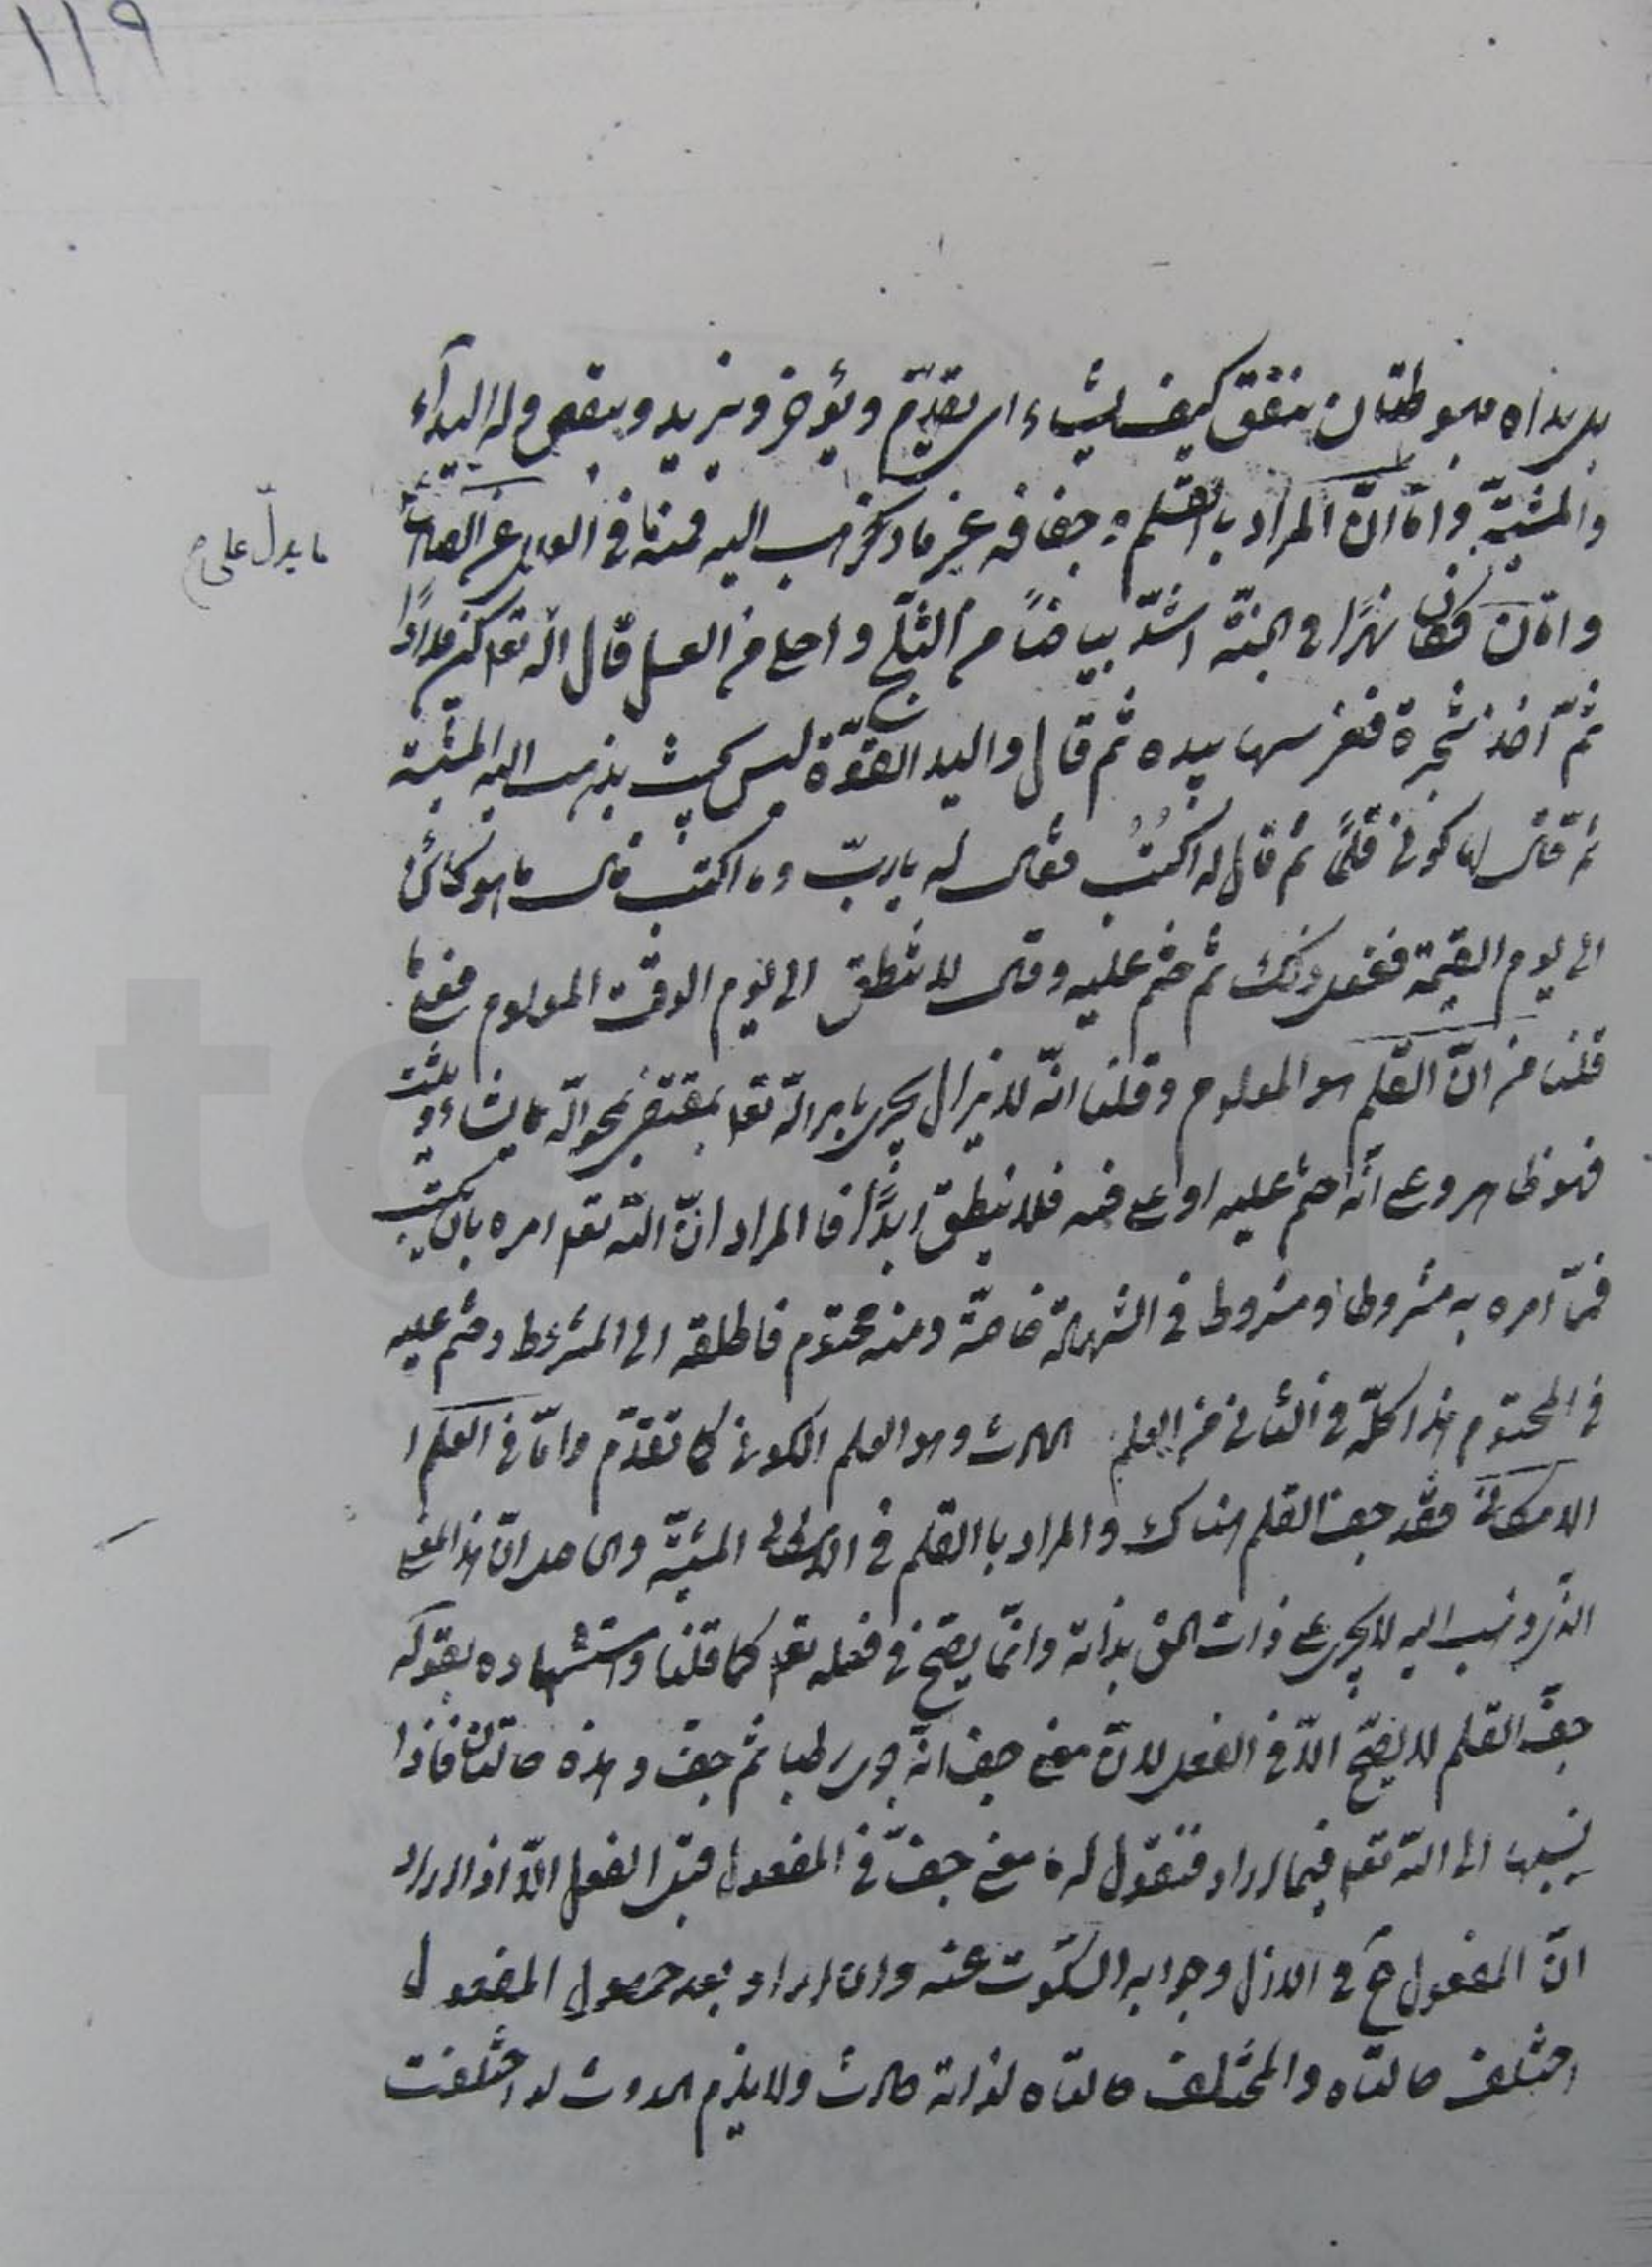 ١١٩
بل يداه مبسوطتان ينفق كيف يشاء اى يقدّم ويؤخر ويزيد وينقص وله البدآء
والمشيّة وامّا انّ المراد بالقلم وجفافه غير ما ذهب اليه فمنه ما فى العلل عن الصادق
ما يدلّ على
وامّا ن فكان نهرًا فى الجنّة اشدّ بياضًا من الثلج واحلى من العسل قال الله تعا كن مدادًا
ثمّ أخذ شجرة فغرسها بيده ثم قال واليد القوّة ليس بحيث يذهب اليه المشبّهة
ثم قال لها كونى قلمًا ثم قال له اكتب فقال له يا ربّ وما اكتب قال ما هو كائن
الى يوم القيمة ففعل ذلك ثم ختم عليه وقال لا تنطق الى يوم الوقت المعلوم فعلى ما
قلنا من انّ القلم هو المعلوم وقلنا انّه لا يزال يجرى بامر الله تعا بمقتضى يمحو الله ما يشاء ويثبت
فهو ظاهر وعلى انّه ختم عليه او على فمه فلا ينطق ابدًا فالمراد انّ الله تعا امره بان يكتب
فممّا امره به مشروطا ومشروط فى الشهادة خاصّة ومنه محتوم فاطلقه الى المشروط وختم عليه
فى المحتوم هذا كلّه فى الثانى من العلم الحادث وهو العلم الكونى كما تقدّم وامّا فى العلم ا
الامكانى فقد جفّ القلم هناك والمراد بالقلم فى الامكانى المشيّة والحاصل انّ هذا المعنى
الذى ذهب اليه لا يجرى على ذات الحق بذاته وانّما يصحّ فى فعله تعا كما قلنا واستشهاده بقوله
جفّ القلم لا يصحّ الّا فى الفعل لانّ معنى جفّ انّه كان رطبا ثم جفّ وهذه حالتان فاذا
نسبها الى الله تعا فيما اراد فنقول له ما معنى جفّ فى المفعول قبل الفعل الّا اذا اراد
انّ المفعول فى الازل وجوابه السكوت عنه وان اراد بعد حصول المفعول
اختلف حالتاه والمختلف حالتاه لذاته حادث ولا يلزم الحدوث لو اختلفت